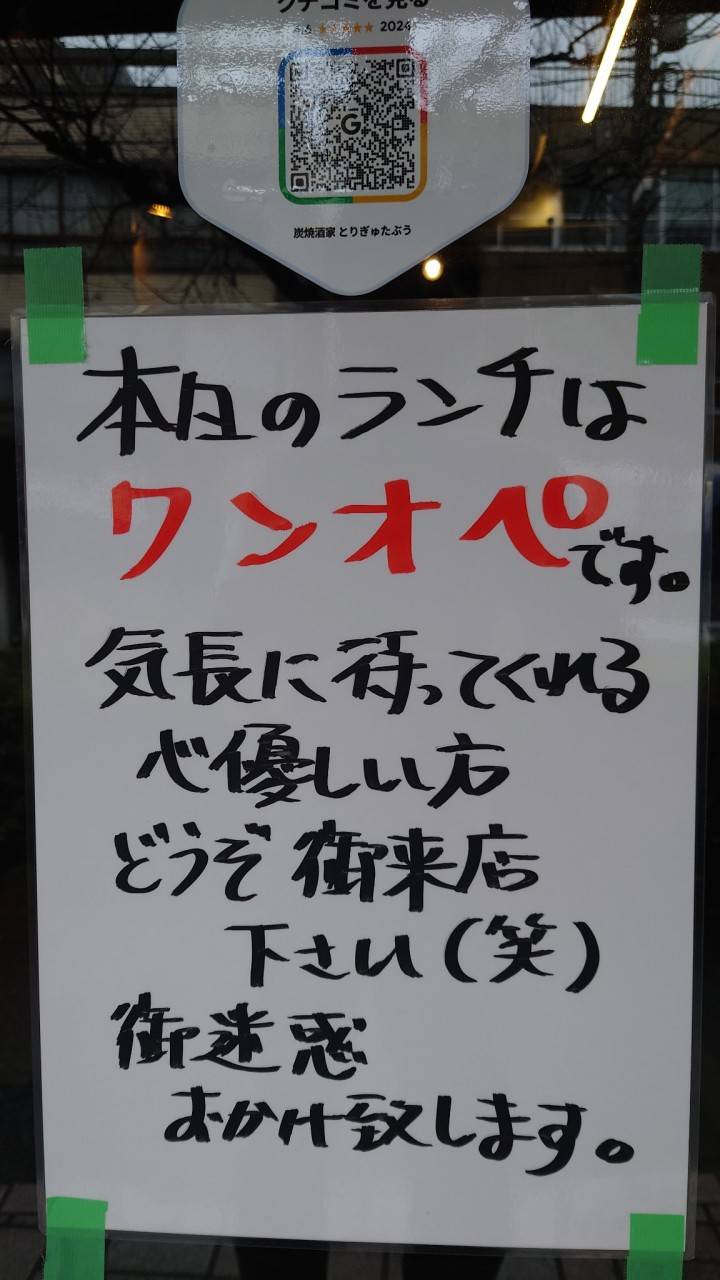 クチコミを見る
★★★★★ 2024
G
炭焼酒家 とりぎゅたぶう
本日のランチは
ワンオペです。
気長に待ってくれる
心優しい方
どうぞ御来店
下さい(笑)
御迷惑
おかけ致します。